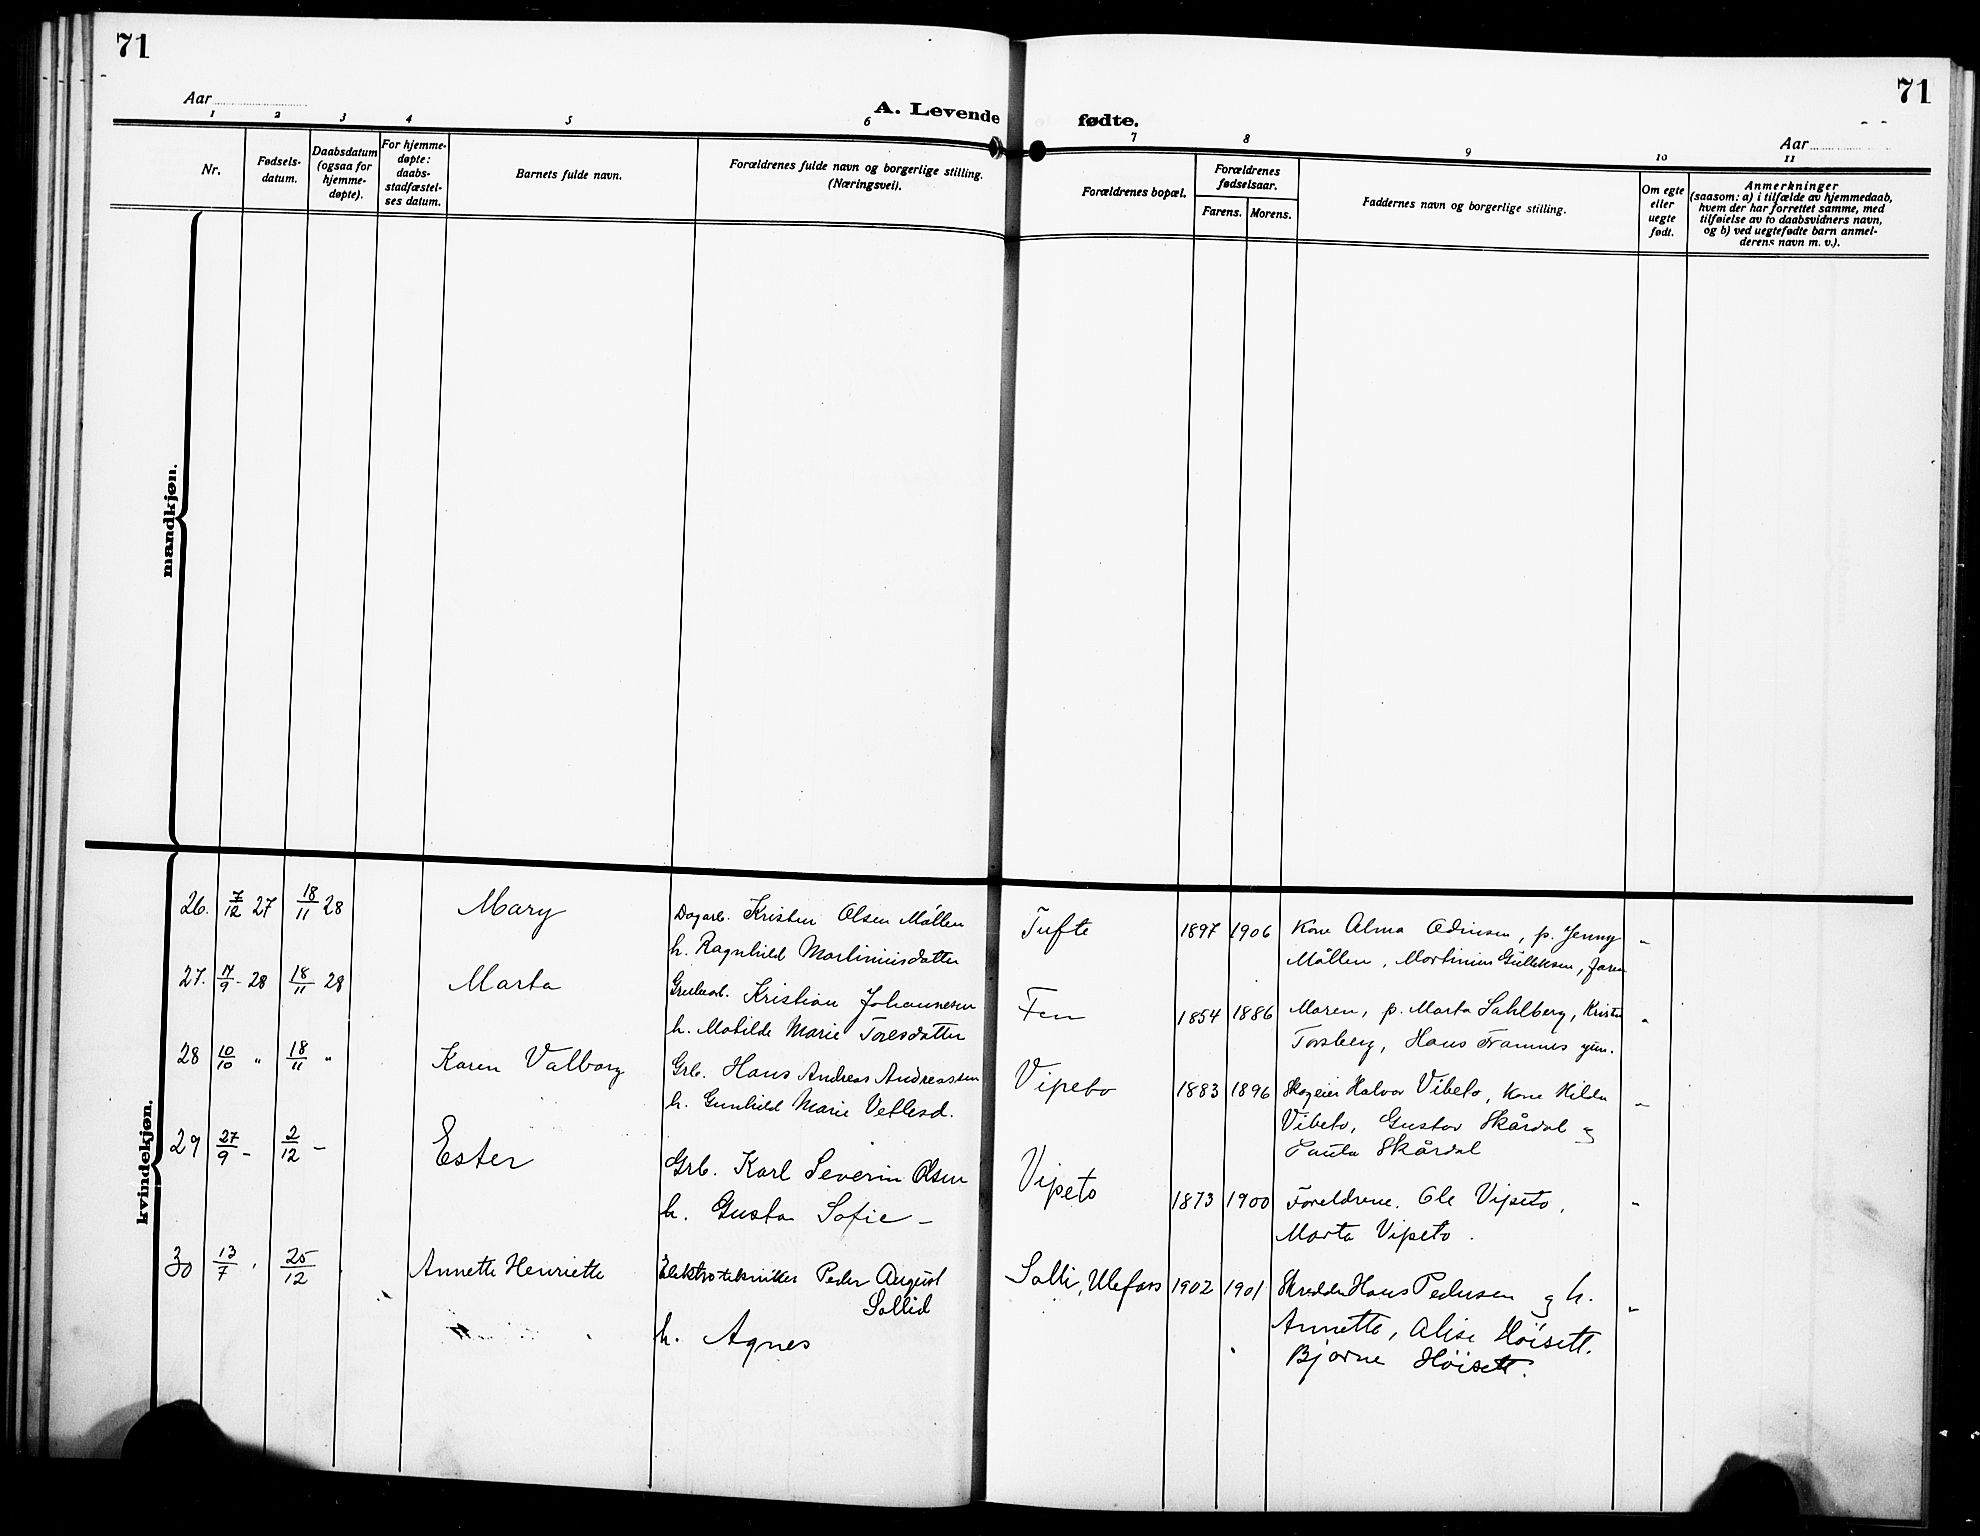 71
71
Aar
A. Levende fødte.
Aar
1 2 3 4 5 6 7 8 9 10 11
Nr.
Fødsels-
datum.
Daabsdatum
(ogsaa for
hjemme-
døpte).
For hjemme-
døpte:
daabs-
stadfæstel-
ses datum.
Barnets fulde navn.
Forældrenes fulde navn og borgerlige stilling.
(Næringsvei).
Forældrenes bopæl.
Forældrenes
fødselsaar.
Farens. Morens.
Faddernes navn og borgerlige stilling.
Om egte
eller
uegte
født.
Anmerkninger
(saasom: a) i tilfælde av hjemmedaab,
hvem der har forrettet samme, med
tilføielse av to daabsvidners navn,
og b) ved uegtefødte barn anmel-
derens navn m. v.).
mandkjøn.
kvindekjøn.
26. 7/12 27 18/11 28 Mary Dagarb. Kristen Olsen Møllen Tufte 1897 1906 Kone Alma Odinsen, p. Jenny "
h. Ragnhild Martiniusdatter Møllen, Martinius Gulleksen,
27. 17/9 - 28 18/11 28 Marta Grubearb. Kristian Johannesen Fen 1854 1886 Maren, p. Marta Sahlberg, "
h. Matilde Marie Toresdatter Torsberg, Hans Framnes gm.
28 10/10 " 18/11 " Karen Valborg Grb. Hans Andreas Andreassen Vipeto 1883 1896 Skogeier Halvor Vibeto, Kone Hilda "
h. Gunhild Marie Vetlesd. Vibeto, Gustav Skårdal og
Paula Skårdal
29 27/9 - 2/12 - Ester Grb. Karl Severin Olsen Vipeto 1873 1900 Foreldrene. Ole Vipeto, "
h. Gusta Sofie - Marta Vipeto.
30 13/7 " 25/12 Annette Henriette Elektrotekniker Peder August Solli, Ulefoss 1902 1901 Skredder Hans Pedersen og h. "
Sollid
h. Agnes Annette, Alise Høisett.
Bjarne Høisett.